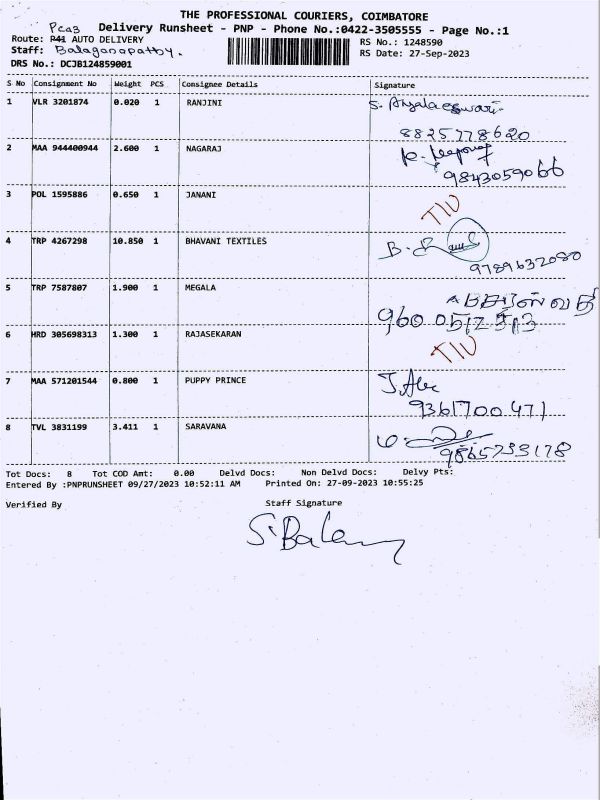 THE PROFESSIONAL COURIERS, COIMBATORE
Pca3 Delivery Runsheet - PNP - Phone No.:0422-3505555 - Page No.:1
Route: P41 AUTO DELIVERY RS No.: 1248590
Staff: Balaganapathy. RS Date: 27-Sep-2023
DRS No.: DCJB124859001
S No Consignment No Weight PCS Consignee Details Signature
1 VLR 3201874 0.020 1 RANJINI
8825778620
2 MAA 944400944 2.600 1 NAGARAJ
9843059066
3 POL 1595886 0.650 1 JANANI
4 TRP 4267298 10.850 1 BHAVANI TEXTILES
9789632080
5 TRP 7587807 1.900 1 MEGALA
960 0512 513
6 HRD 305698313 1.300 1 RAJASEKARAN
7 MAA 571201544 0.800 1 PUPPY PRINCE
9361700471
8 TVL 3831199 3.411 1 SARAVANA
9865733178
Tot Docs: 8 Tot COD Amt: 0.00 Delvd Docs: Non Delvd Docs: Delvy Pts:
Entered By :PNPRUNSHEET 09/27/2023 10:52:11 AM Printed On: 27-09-2023 10:55:25
Verified By Staff Signature